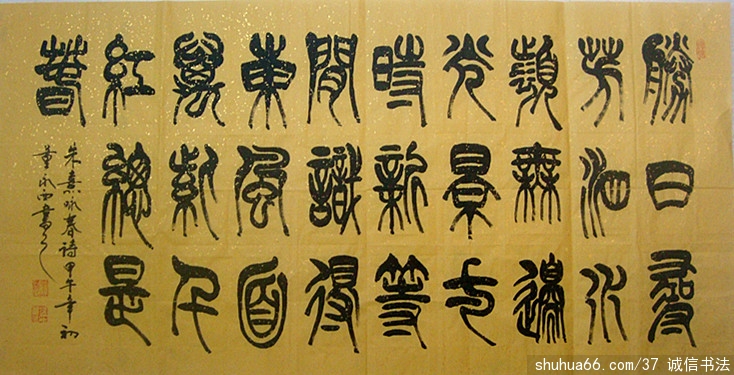 勝日尋
芳泗水
瀕無邊
光景一
時新等
閒識得
東風面
萬紫千
紅總是
春
朱熹咏春诗甲午年初
董永西書之
shuhua66.com/37 诚信书法